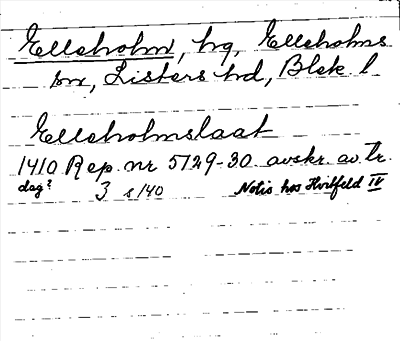 Elleholm, hg, Elleholms
sn, Listers hd, Blek l
Elleholmslaat
1410 Rep. nr 5129-30 avskr. av tr.
dag? 3 s 140 Notis hos Hvitfeld IV